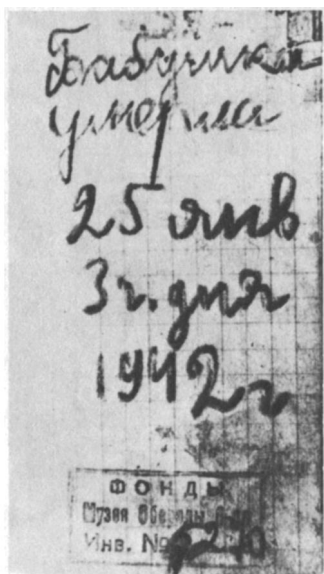 Бабушка
умерла
25 янв
3 ч. дня
1942 г
ФОНДЫ
Музея
Инв. №